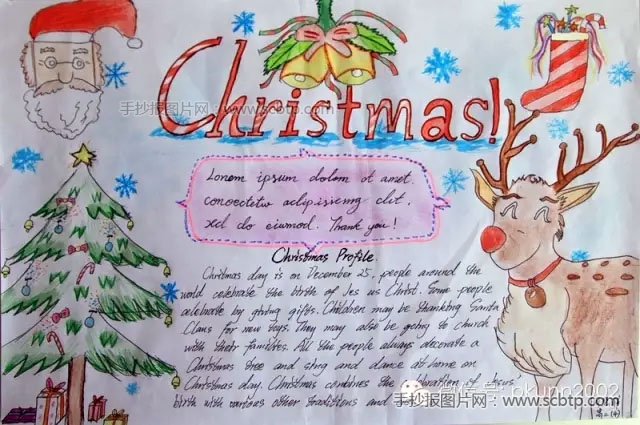 Christmas!
手抄报图片网：www.scbtp.com
Lorem ipsum dolom ot amet.
consectetw aclipisicmg clit,
xel do eiumod. Thank you!
Christmas Profile
Christmas day is on December 25, people around the
world celebrate the birth of Jes us Christ. Some people
celebrate by giving gifts. Children may be thanking Santa
Claus for new toys. They may also be going to church
with their families. All the people always decorate a
Christmas tree and sing and dance at home on
Christmas day. Christmas combines the celebration of Jesus
birth with various other traditions and
pkupp2002
手抄报图片网：www.scbtp.com